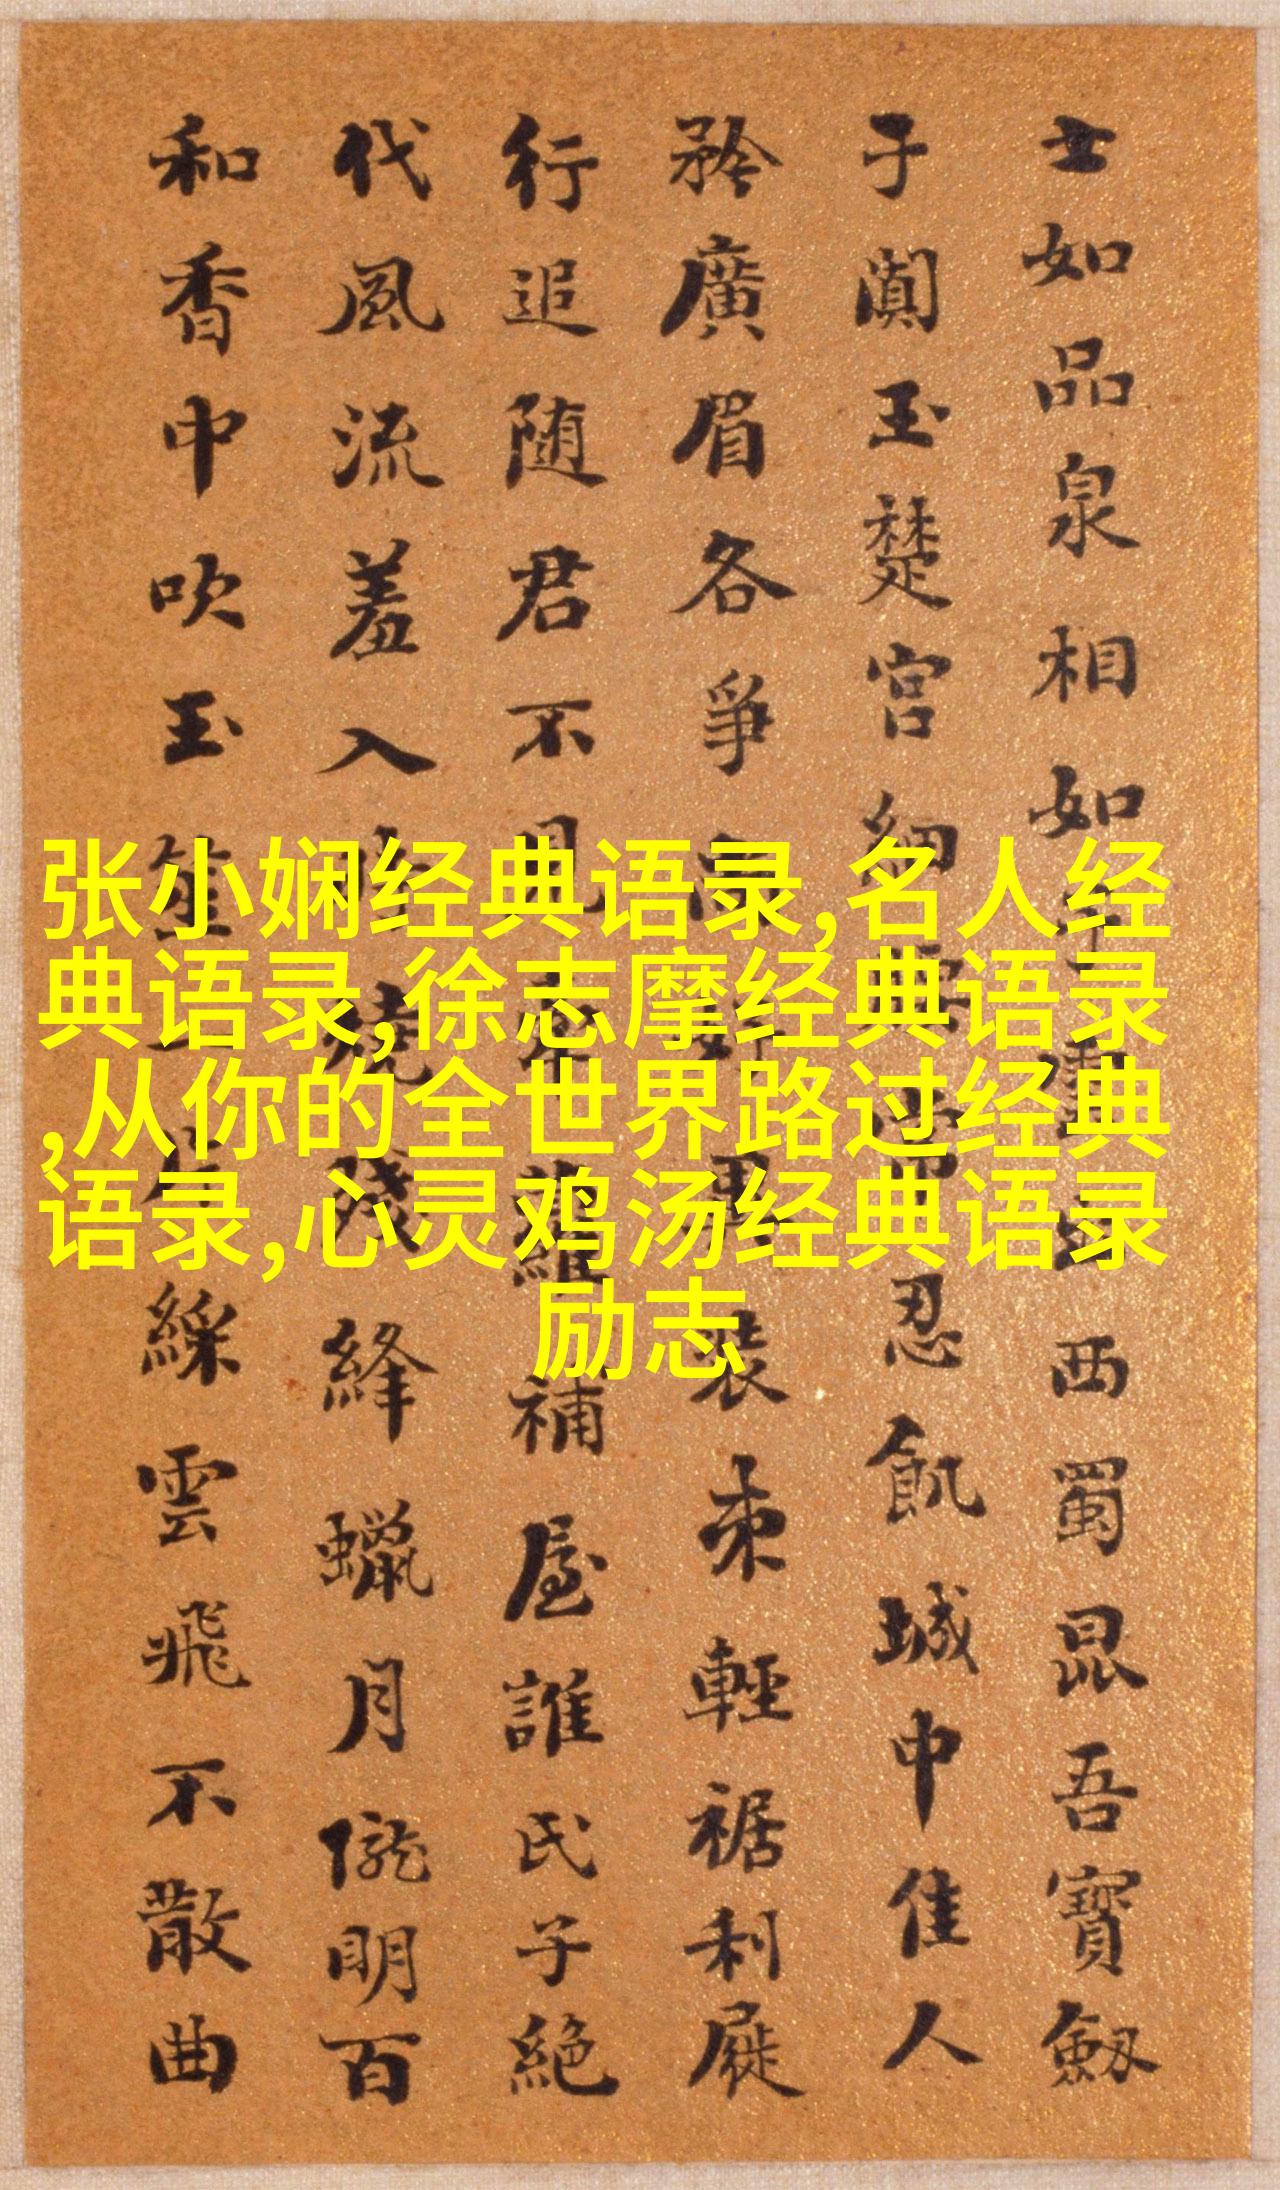 士如品泉相如西蜀昆吾寶劒
于闐玉楚宮細忍飢城中佳人
矜廣眉各爭裝束輕裾利屣
行追随君不見蘿補屋誰氏子絕
代風流羞入燒殘絳蠟月隴明百
和香中吹玉笙綵雲飛不散曲
张小娴经典语录,名人经
典语录,徐志摩经典语录
,从你的全世界路过经典
语录,心灵鸡汤经典语录
励志